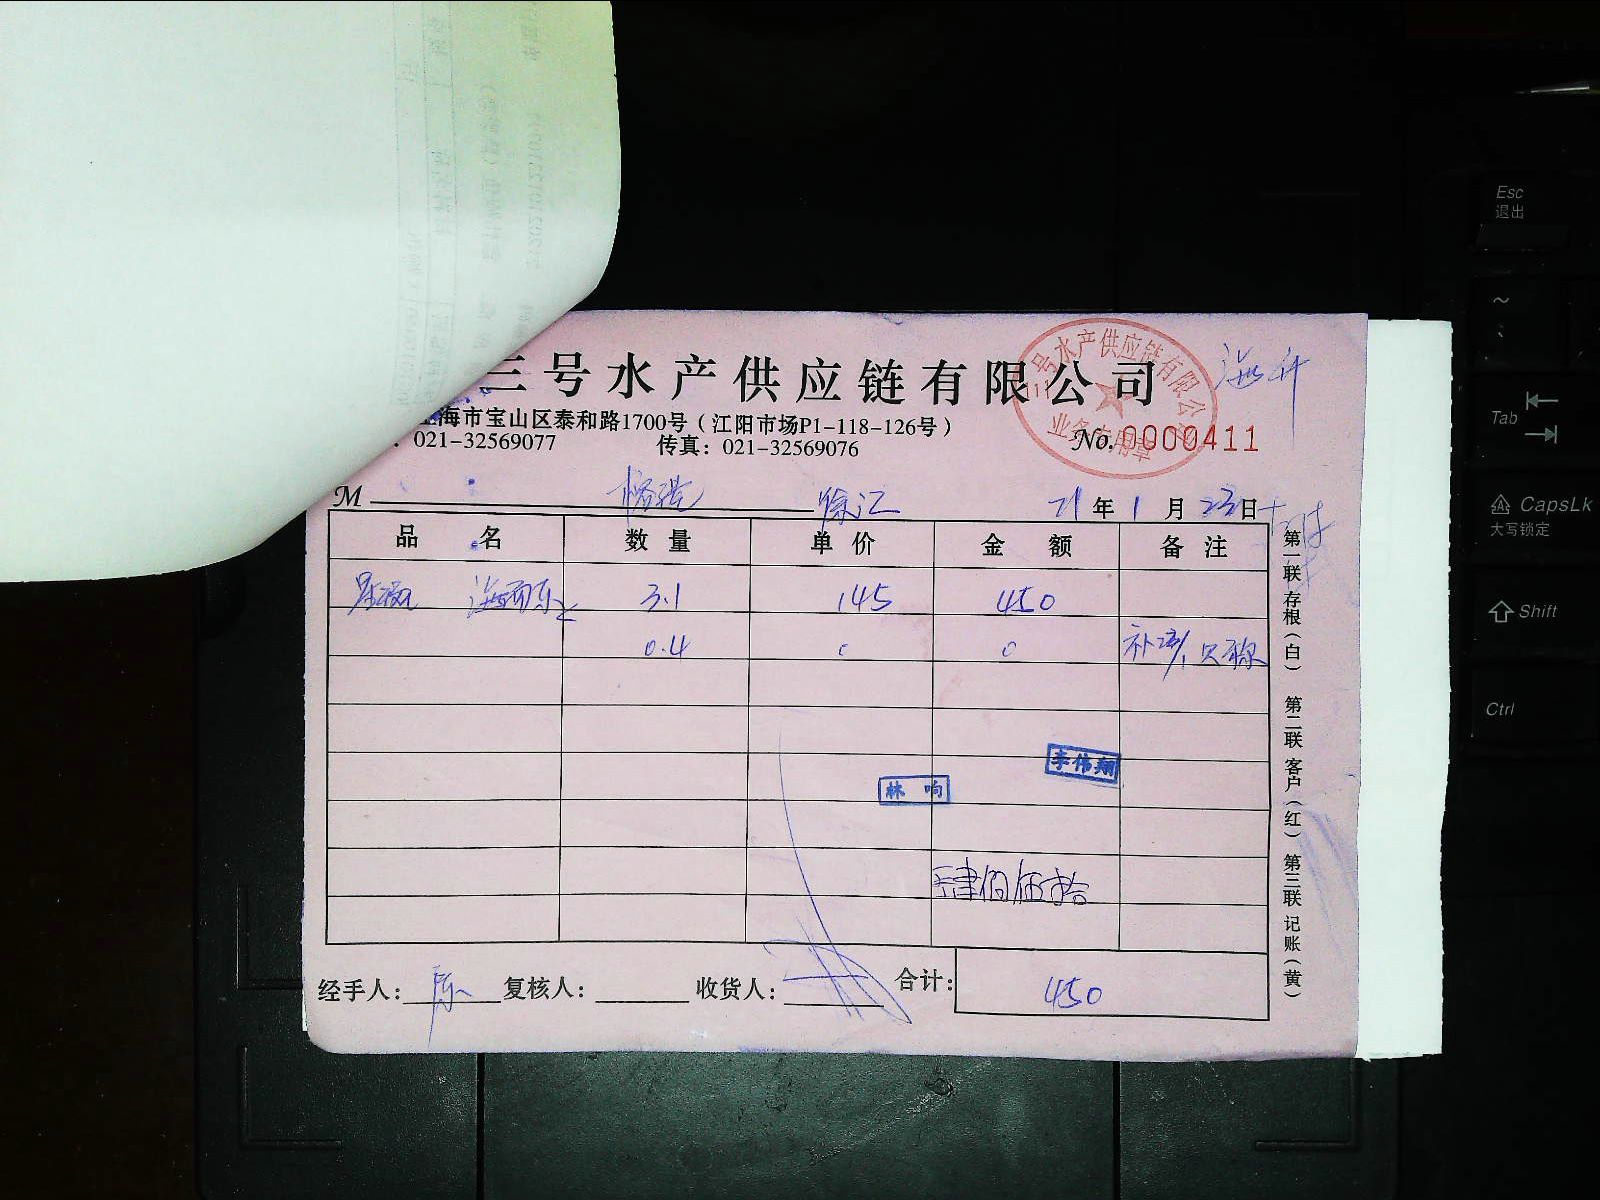 三号水产供应链有限公司
海市宝山区泰和路1700号（江阳市场P1-118-126号）
021-32569077 传真：021-32569076
No. 0000411
三号水产供应链有限公
业务专用章
M 徐汇 21年1月23日
品名 数量 单价 金额 备注
3.1 145 450
0.4 0 0
李伟翔
林响
肆佰伍拾
经手人：陈 复核人： 收货人： 合计：450
第一联 存根（白） 第二联 客户（红） 第三联 记账（黄）
Esc
退出
~
Tab
CapsLk
大写锁定
Shift
Ctrl